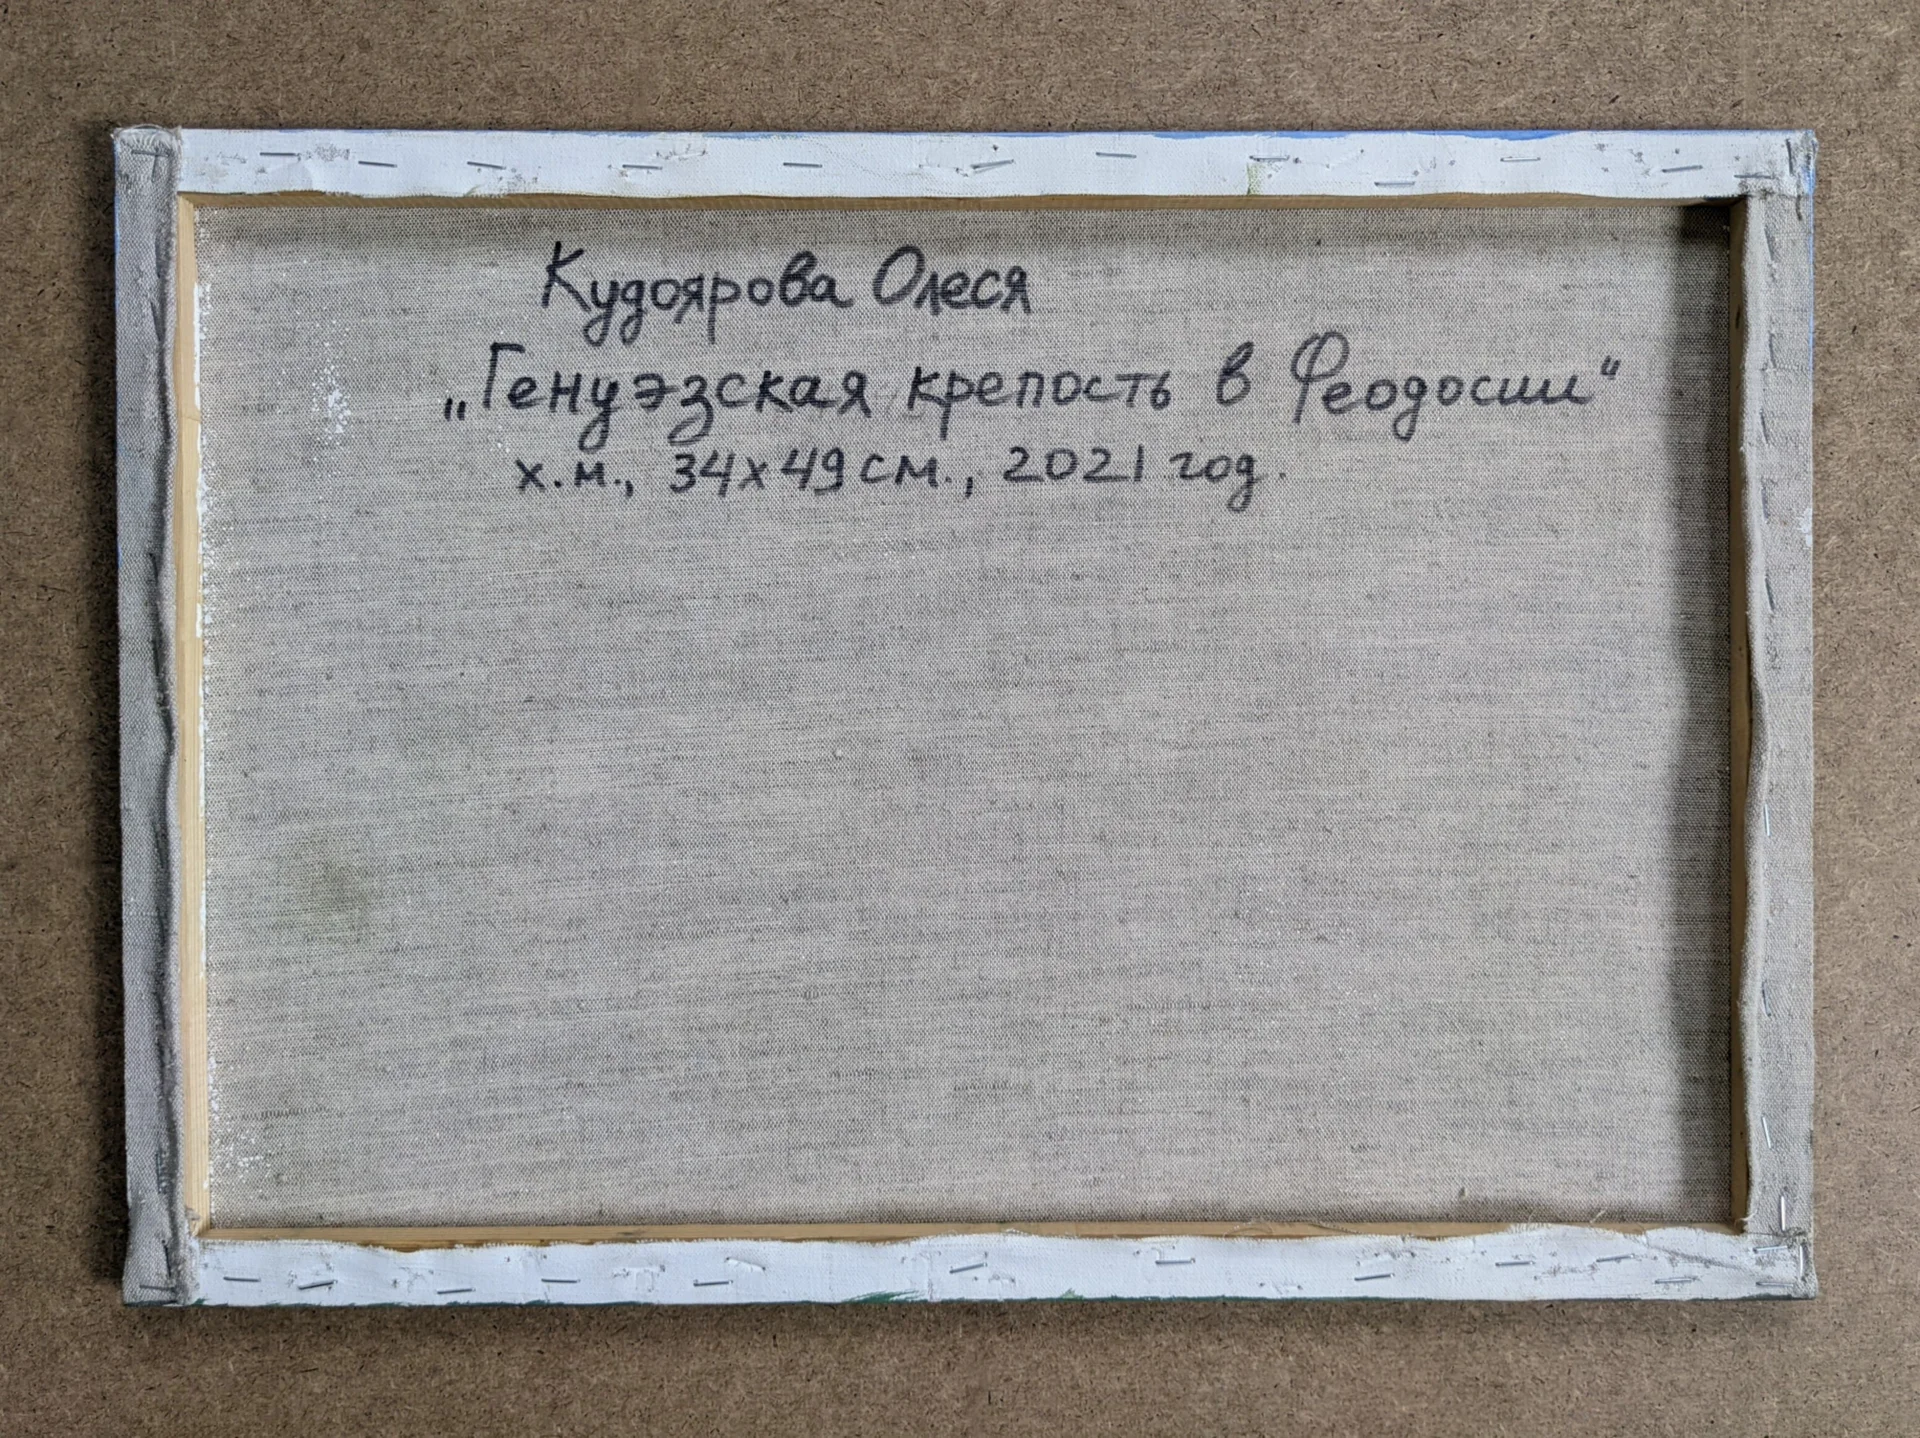 Кудоярова Олеся
„Генуэзская крепость в Феодосии“
х.м., 34х49см., 2021 год.